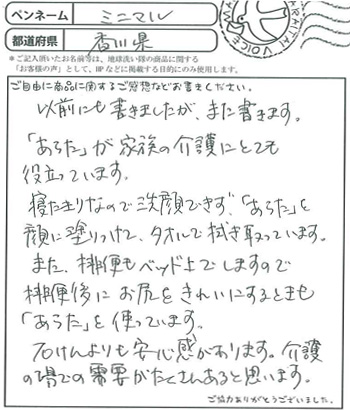 ペンネーム ミニマル
都道府県 香川県
＊ご記入頂いたお名前等は、地球洗い隊の商品に関する
「お客様の声」として、HPなどに掲載する目的にのみ使用します。
ご自由に商品に関するご感想などお書きください。
以前にも書きましたが、また書きます。
「あらた」が家族の介護にとても
役立っています。
寝たきりなので洗顔できず、「あらた」を
顔に塗りつけて、タオルで拭き取っています。
また、排便もベッド上でしますので
排便後にお尻をきれいにするときも
「あらた」を使っています。
石けんよりも安心感があります。介護
の場での需要がたくさんあると思います。
ご協力ありがとうございました。